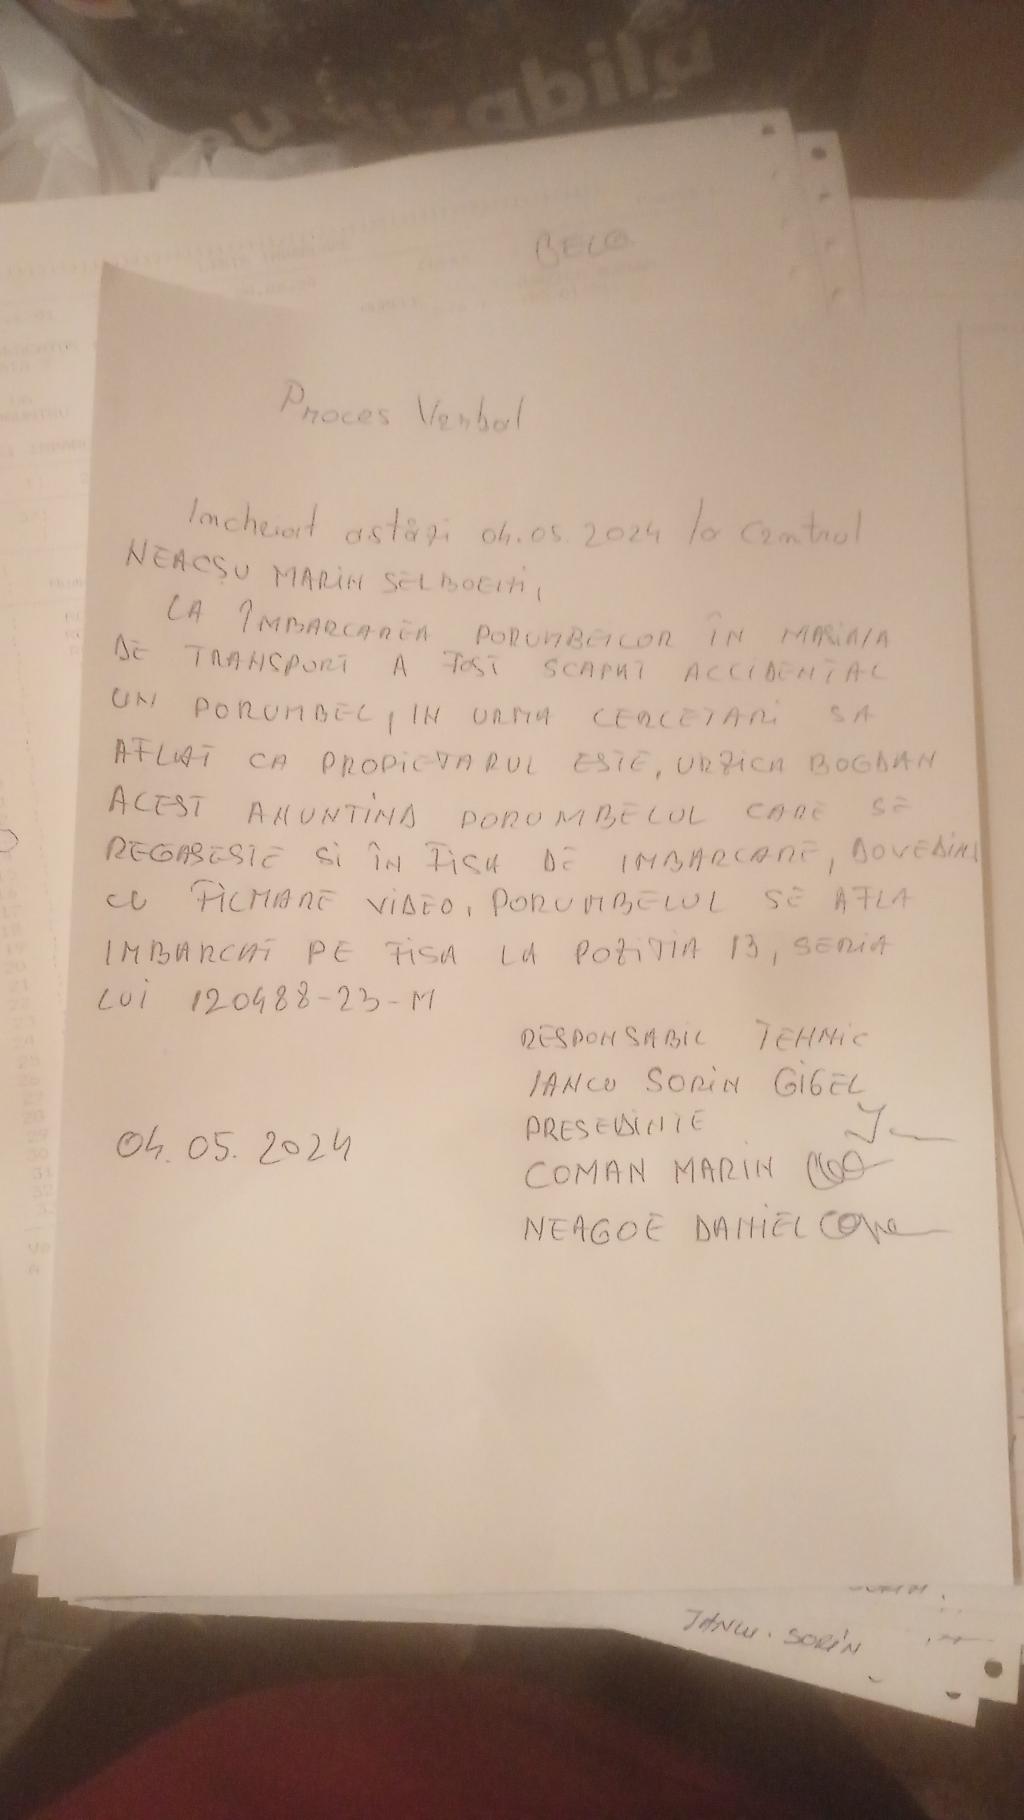 BELO
Proces Verbal
Incheiat astăzi 04.05.2024 la Centrul
NEACȘU MARIN
LA ÎMBARCAREA PORUMBEILOR ÎN MAȘINA
DE TRANSPORT A FOST SCAPAT ACCIDENTAL
UN PORUMBEL, IN URMA CERCETARI SA
AFLAT CA PROPIETARUL ESTE, URZICA BOGDAN
ACEST PORUMBELUL CARE SE
REGASESTE SI ÎN FISA DE IMBARCARE, DOVEDIND
CU FILMARE VIDEO, PORUMBELUL SE AFLA
IMBARCAT PE FISA LA POZITIA 13, SERIA
LUI 120488-23-M
RESPONSABIL TEHNIC
IANCU SORIN GIGEL
PRESEDINTE
04.05.2024
COMAN MARIN
NEAGOE DANIEL
IANCU. SORIN